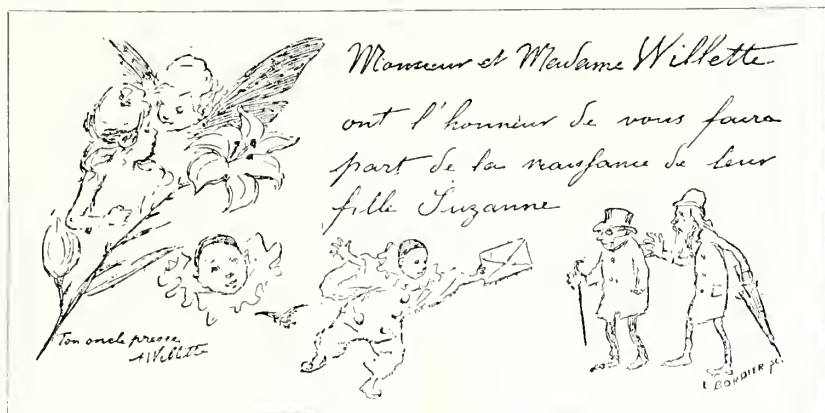 Monsieur et Madame Willette
ont l'honneur de vous faire
part de la naissance de leur
fille Suzanne
Ton oncle presse
A Willette
L BORDIER sc.